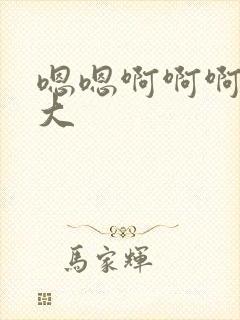 嗯嗯啊啊啊
大
馬家輝